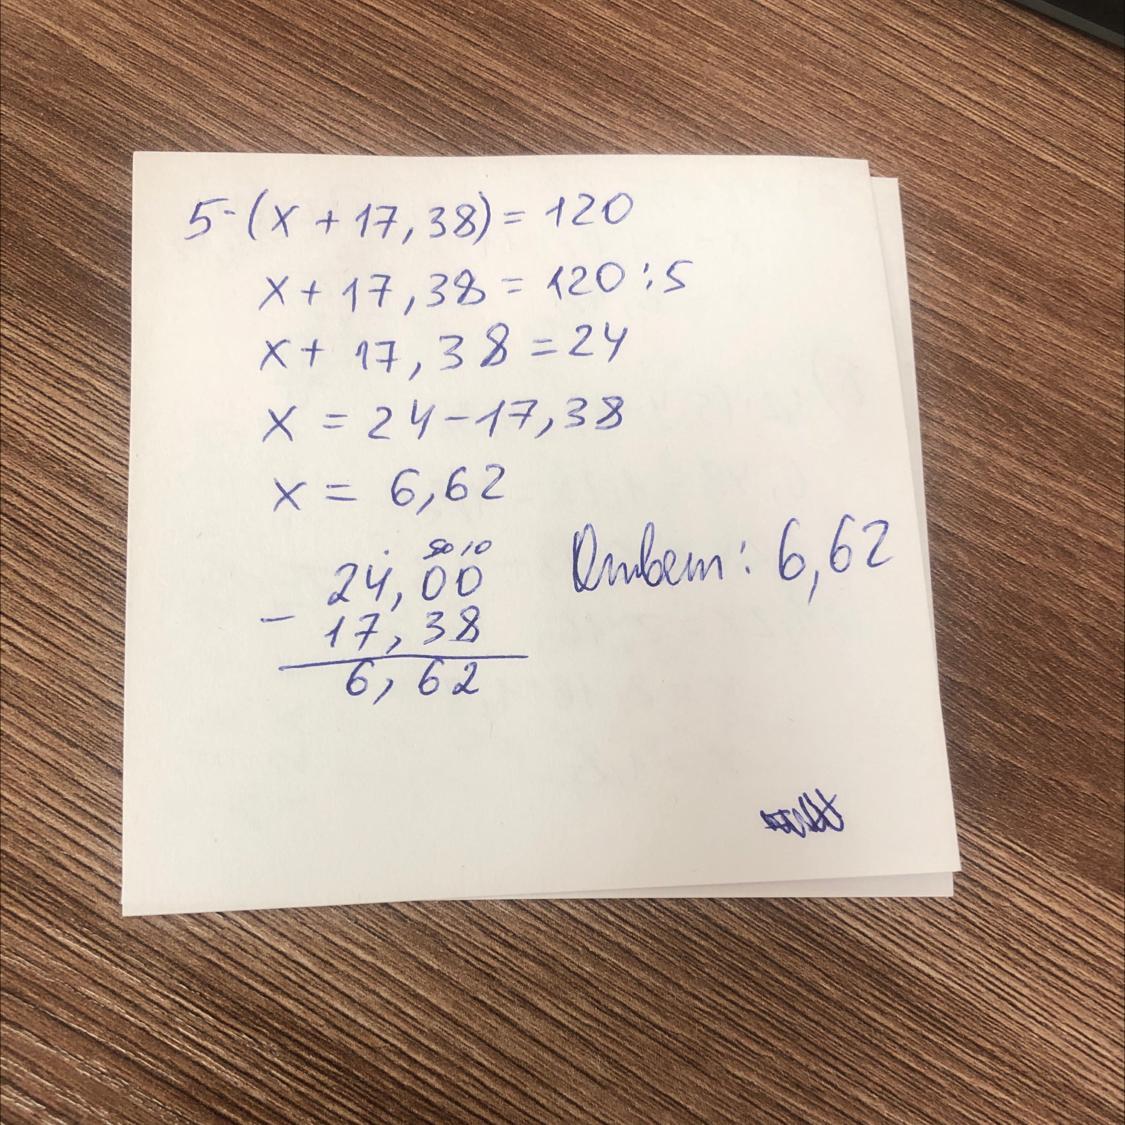 5·(x + 17,38) = 120
x + 17,38 = 120 : 5
x + 17,38 = 24
x = 24 - 17,38
x = 6,62
24,00
- 17,38
6,62
Ответ: 6,62